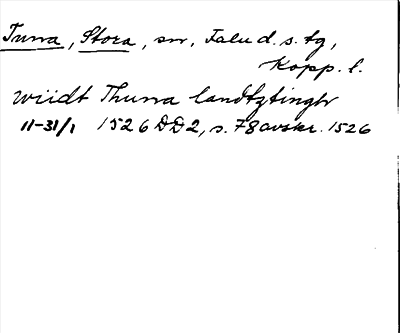 Tuna, Stora, sn, Falu d. s. tg,
Kopp. l.
wiidt Thuna landtztingh
11-31/1 1526 DD2, s. 78 avskr. 1526